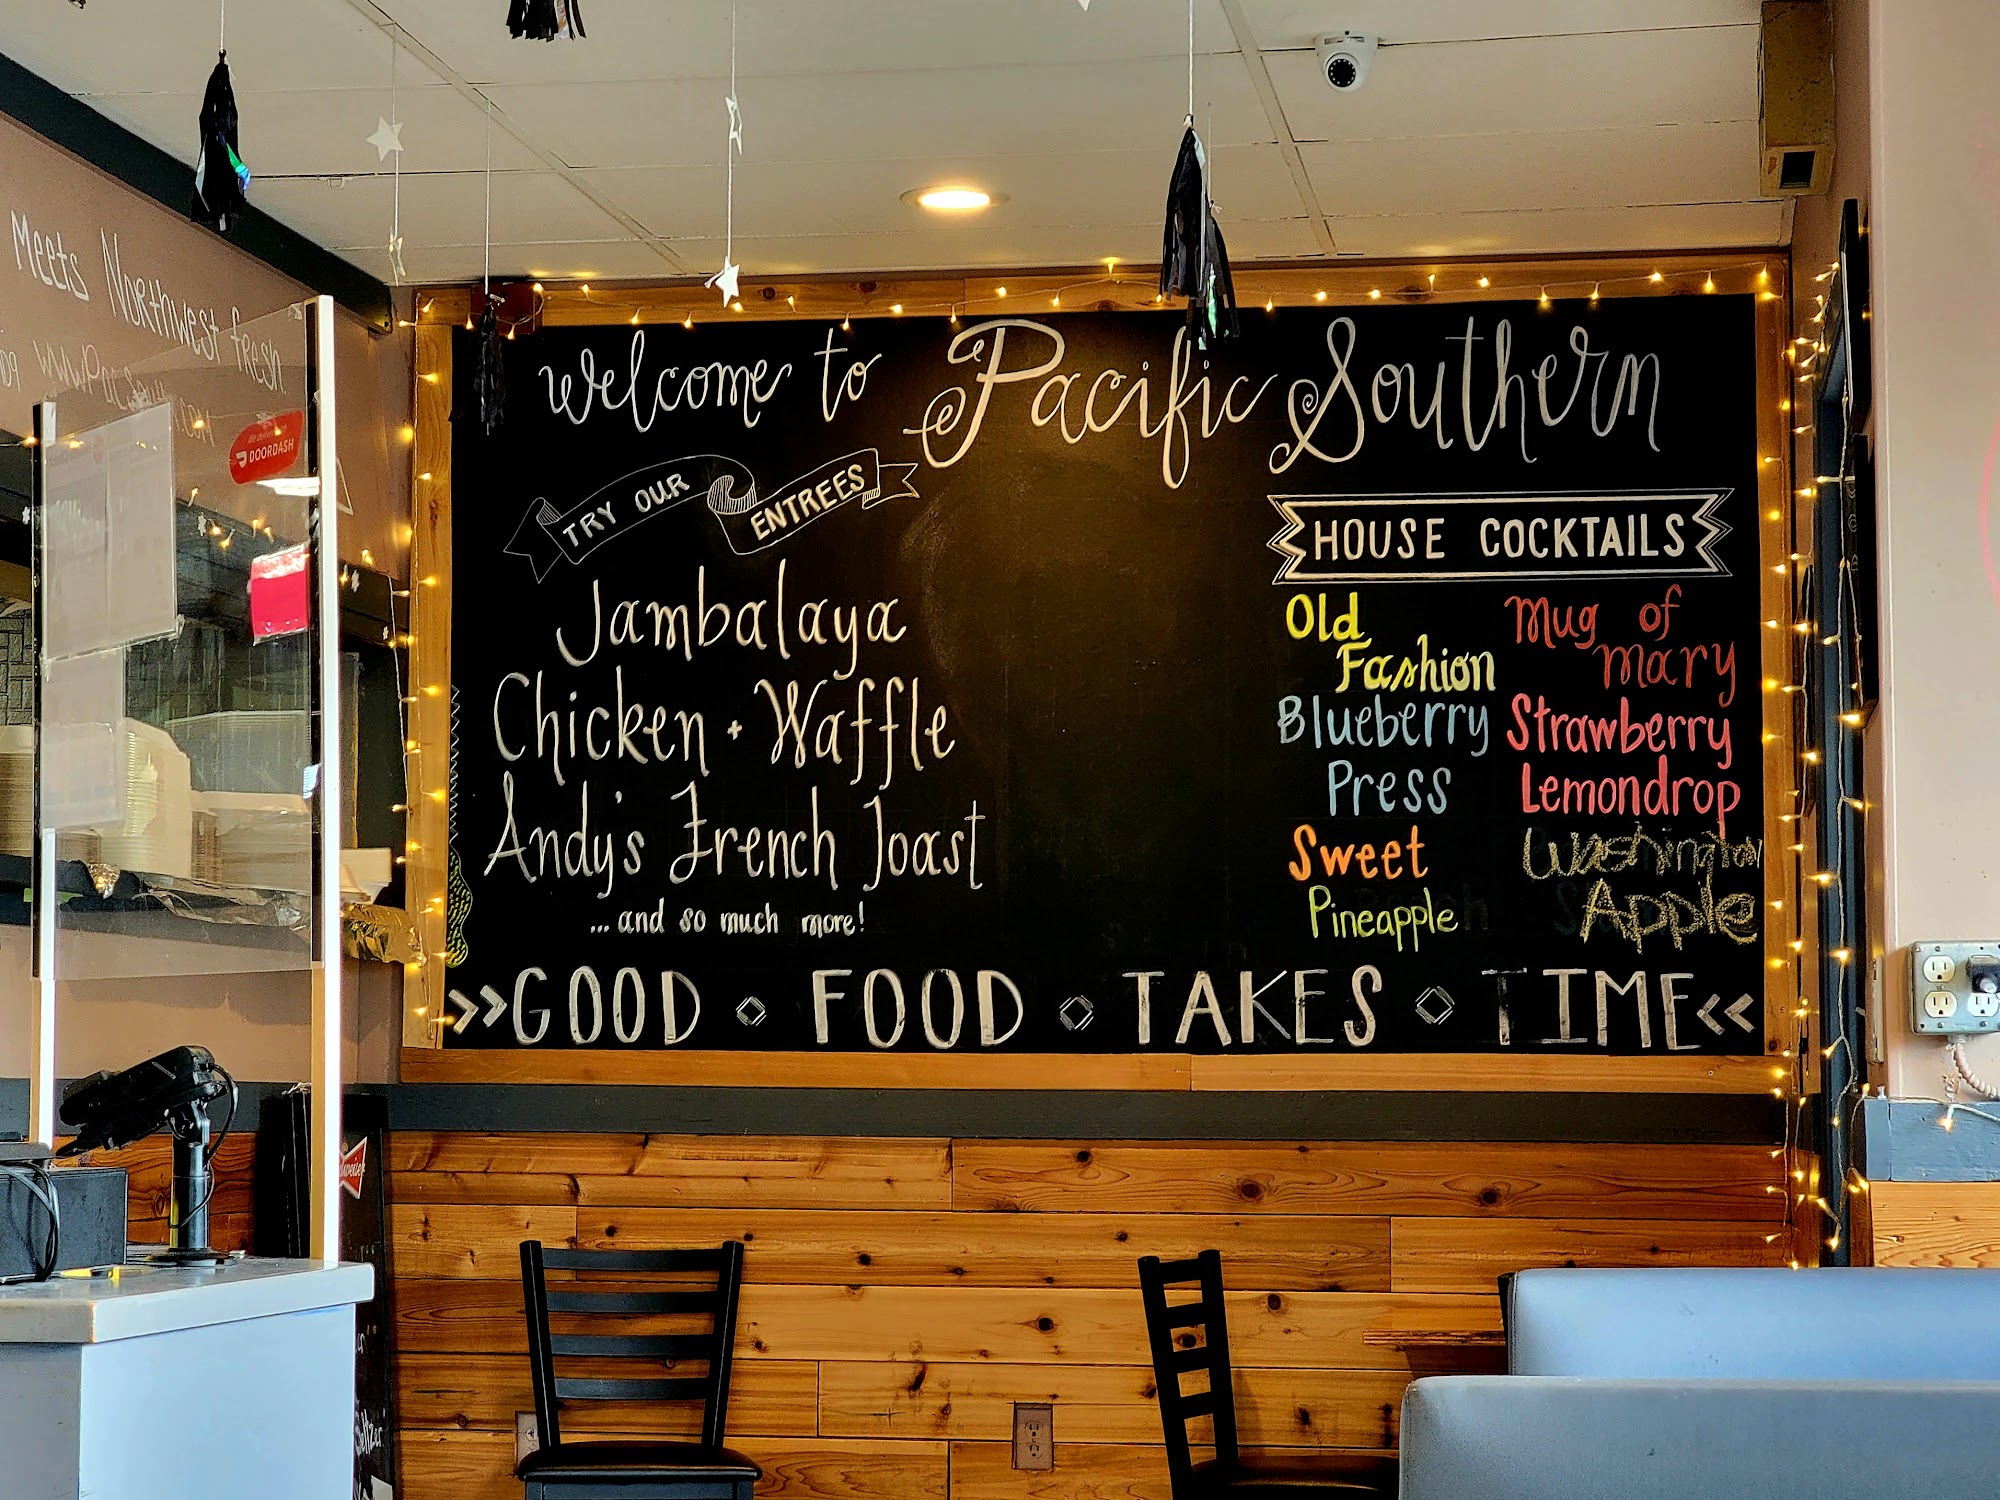 Meets Northwest fresh
DOORDASH
Welcome to Pacific Southern
TRY OUR ENTREES
Jambalaya
Chicken + Waffle
Andy's French Toast
... and so much more!
HOUSE COCKTAILS
Old
Fashion
Blueberry
Press
Sweet
Pineapple
Mug of
Mary
Strawberry
Lemondrop
Washington
Apple
>>GOOD ◇ FOOD ◇ TAKES ◇ TIME<<